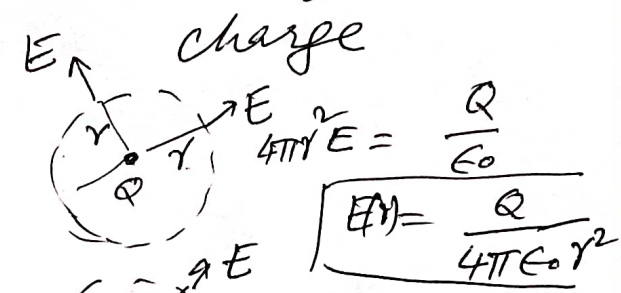 charge
E
E
r
r
Q
4πr²E = Q/ϵ₀
E(r) = Q/4πϵ₀r²
E